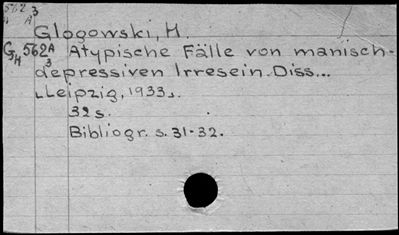 562 3
4 A
Glogowski, H.
G 562A Atypische Fälle von manisch-
H 3 depressiven Irresein. Diss...
Leipzig, 1933.
32 s.
Bibliogr. s. 31-32.